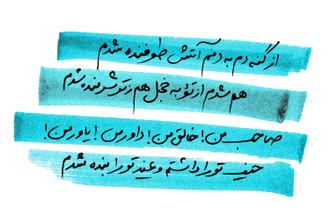 از گنه دم به دمم آتش طوفنده شدم
هم شدم از تو به خجل هم ز تو شرمنده شدم
صاحب من! خالق من! داور من! یاور من!
حیف تو را داشتم و عبد تو را بنده شدم